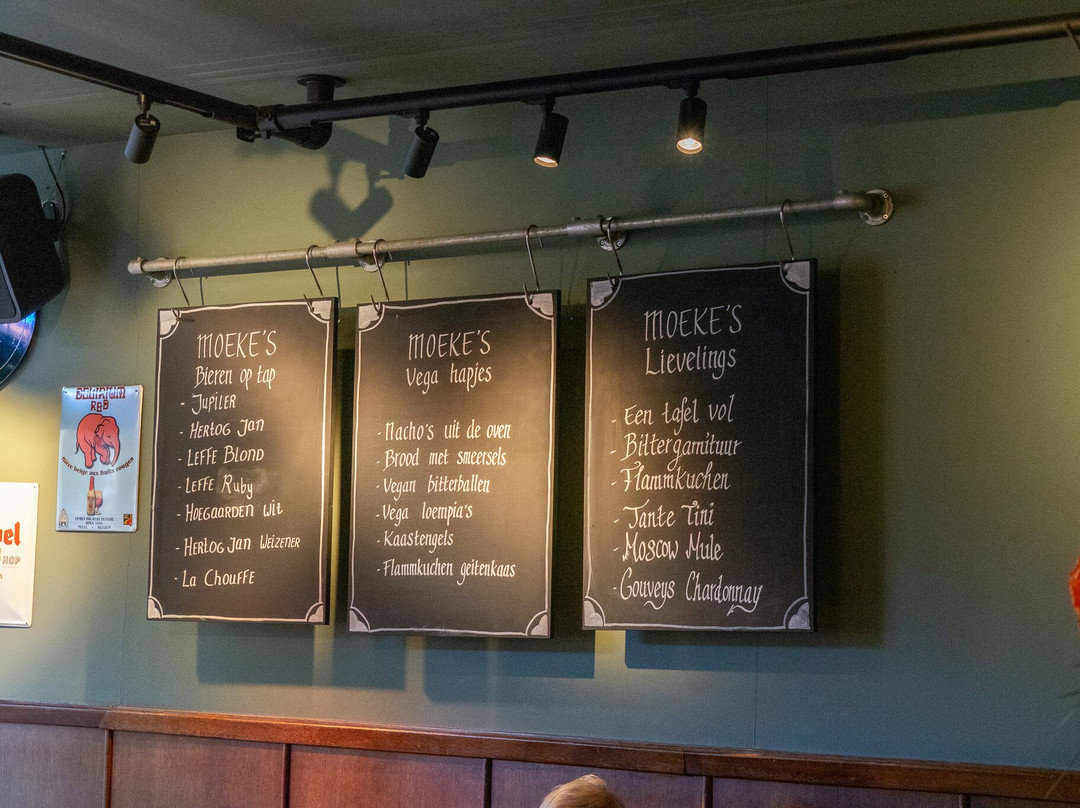 MOEKE'S
Bieren op tap
- JUPILER
- HERTOG JAN
- LEFFE BLOND
- LEFFE Ruby
- HOEGAARDEN Wit
- HERTOG JAN WEIZENER
- LA CHOUFFE
MOEKE'S
Vega hapjes
- Nacho's uit de oven
- Brood met smeersels
- Vegan bitterballen
- Vega loempia's
- Kaastengels
- Flammkuchen geitenkaas
MOEKE'S
Lievelings
- Een tafel vol
- Bittergarnituur
- Flammkuchen
- Tante Tini
- Moscow Mule
- Gouveys Chardonnay
DELIRIUM
RED
Bière belge aux fruits rouges
HOP